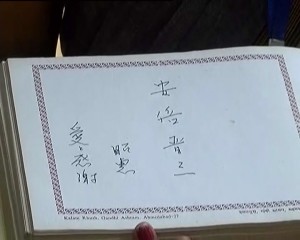 安倍晋三
昭恵
愛、感謝
Kalam Khush, Gandhi Ashram, Ahmedabad-27